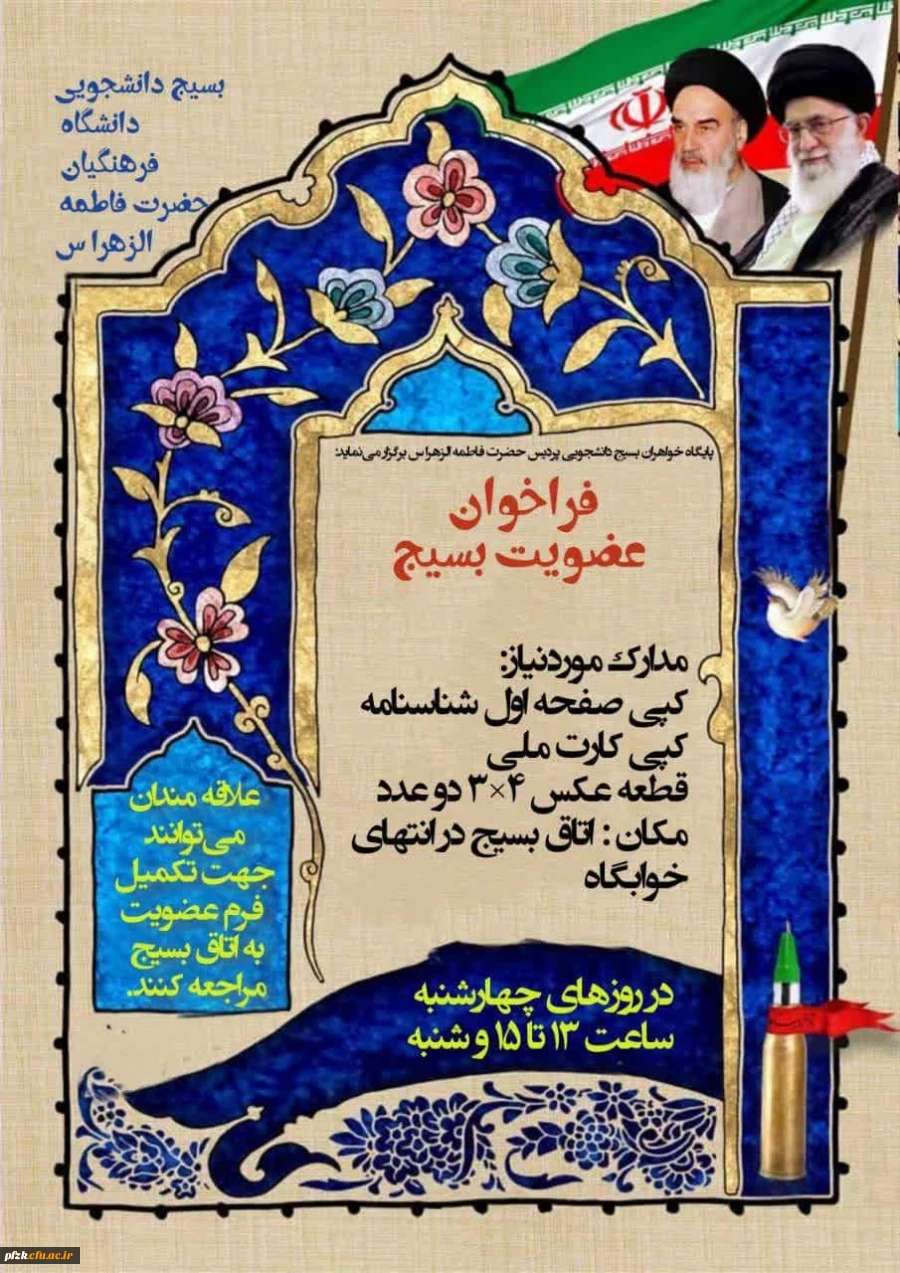 بسیج دانشجویی
دانشگاه
فرهنگیان
حضرت فاطمه
الزهرا س
پایگاه خواهران بسیج دانشجویی پردیس حضرت فاطمه الزهرا س برگزار می‌نماید:
فراخوان
عضویت بسیج
مدارک موردنیاز:
کپی صفحه اول شناسنامه
کپی کارت ملی
قطعه عکس ۴×۳ دو عدد
مکان : اتاق بسیج در انتهای
خوابگاه
علاقه مندان
می‌توانند
جهت تکمیل
فرم عضویت
به اتاق بسیج
مراجعه کنند.
در روزهای چهارشنبه
ساعت ۱۳ تا ۱۵ و شنبه
pfzk.cfu.ac.ir